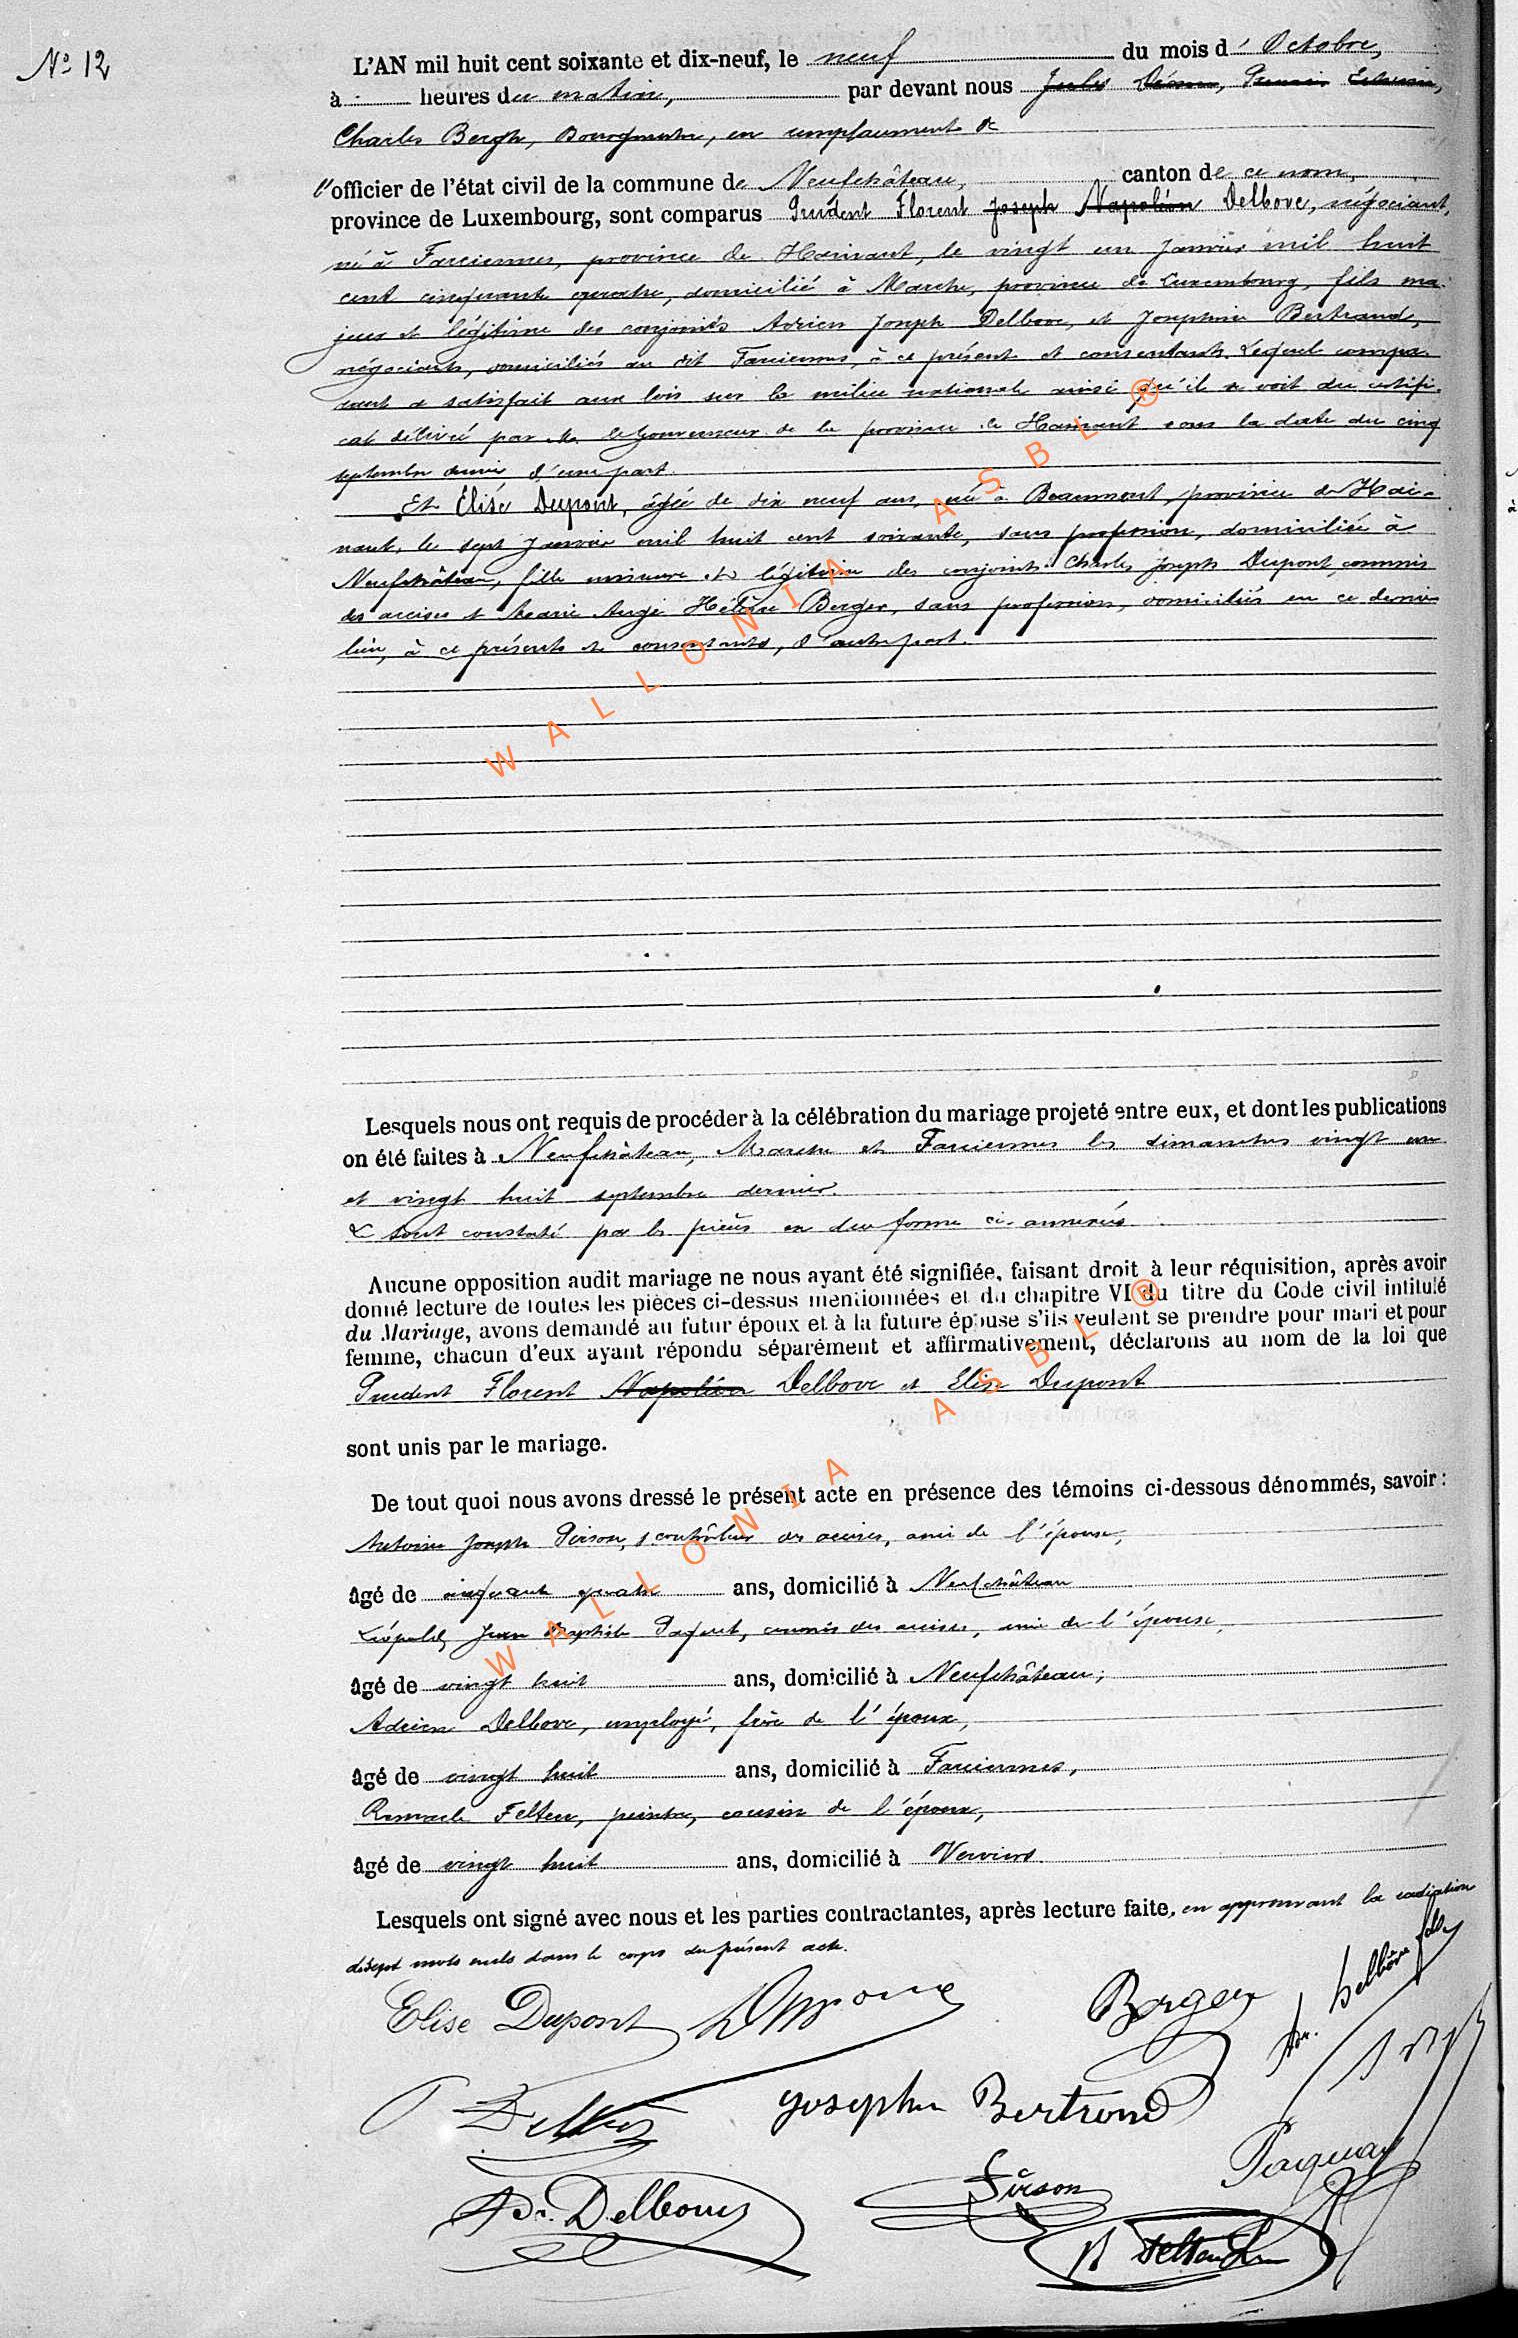 No 12
L'AN mil huit cent soixante et dix-neuf, le neuf du mois d' Octobre,
à heures du matin, par devant nous Jules
Charles Bergh, Bourgmestre, en remplacement de
l'officier de l'état civil de la commune de Neufchâteau, canton de ce nom,
province de Luxembourg, sont comparus Prudent Florent Joseph Napoléon Delbove, négociant,
né à Farciennes, province de Hainaut, le vingt un Janvier mil huit
cent cinquante quatre, domicilié à Marche, province de Luxembourg, fils ma-
jeur et légitime des conjoints Adrien Joseph Delbove, et Josephine Bertrand,
négociants, domiciliés au dit Farciennes, à ce présents et consentants. Lequel compa-
rant a satisfait aux lois sur la milice nationale ainsi qu'il se voit du certifi-
cat délivré par M. le Gouverneur de la province de Hainaut sous la date du cinq
septembre dernier d'une part.
Et Elise Dupont, âgée de dix neuf ans, née à Beaumont, province de Hai-
naut, le sept Janvier mil huit cent soixante, sans profession, domiciliée à
Neufchâteau, fille mineure et légitime des conjoints Charles Joseph Dupont, commis
des accises et Marie Ange Hélène Berger, sans profession, domiciliés en ce dernier
lieu, à ce présents et consentants, d'autre part.
Lesquels nous ont requis de procéder à la célébration du mariage projeté entre eux, et dont les publications
on été faites à Neufchâteau, Marche et Farciennes les dimanches vingt un
et vingt huit septembre dernier.
& sont constaté par les pièces en due forme ci-annexées
Aucune opposition audit mariage ne nous ayant été signifiée, faisant droit à leur réquisition, après avoir
donné lecture de toutes les pièces ci-dessus mentionnées et du chapitre VI du titre du Code civil intitulé
du Mariage, avons demandé au futur époux et à la future épouse s'ils veulent se prendre pour mari et pour
femme, chacun d'eux ayant répondu séparément et affirmativement, déclarons au nom de la loi que
Prudent Florent Napoléon Delbove et Elise Dupont
sont unis par le mariage.
De tout quoi nous avons dressé le présent acte en présence des témoins ci-dessous dénommés, savoir :
Antoine Joseph Pirson, contrôleur des accises, ami de l'épouse,
âgé de cinquante quatre ans, domicilié à Neufchâteau
Léopold Jean Baptiste Paquet, commis des accises, ami de l'épouse,
âgé de vingt huit ans, domicilié à Neufchâteau,
Adrien Delbove, employé, frère de l'époux,
âgé de vingt huit ans, domicilié à Farciennes,
Remacle Felten, peintre, cousin de l'époux,
âgé de vingt huit ans, domicilié à Verviers
Lesquels ont signé avec nous et les parties contractantes, après lecture faite, en approuvant la radiation
de sept mots nuls dans le corps du présent acte.
Elise Dupont Dupont Berger Ad. Delbove
P Delbove Josephine Bertrand Paquay
Ad. Delbove Pirson
R Felten
WALLONIA ASBL ®
WALLONIA ASBL ®